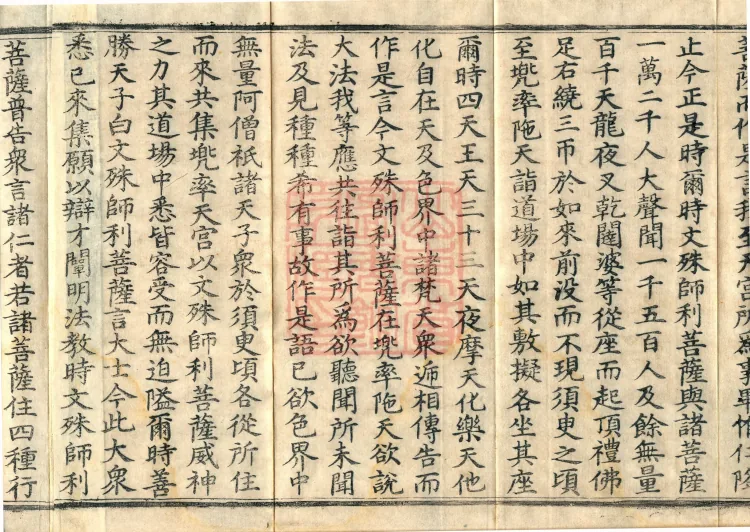 菩薩而作是言我至天宮所為事畢惟仁降
止今正是時爾時文殊師利菩薩與諸菩薩
一萬二千人大聲聞一千五百人及餘無量
百千天龍夜叉乾闥婆等從座而起頂禮佛
足右繞三帀於如來前没而不現須臾之頃
至兠率陁天詣道場中如其敷擬各坐其座
爾時四天王天三十三天夜摩天化樂天他
化自在天及色界中諸梵天衆遞相傳告而
作是言今文殊師利菩薩在兠率陁天欲說
大法我等應共往詣其所為欲聽聞所未聞
法及見種種希有事故作是語已欲色界中
無量阿僧祇諸天子衆於須臾頃各從所住
而來共集兠率天宮以文殊師利菩薩威神
之力其道場中悉皆容受而無迫隘爾時善
勝天子白文殊師利菩薩言大士今此大衆
悉已來集願以辯才闡明法教時文殊師利
菩薩普告衆言諸仁者若諸菩薩住四種行